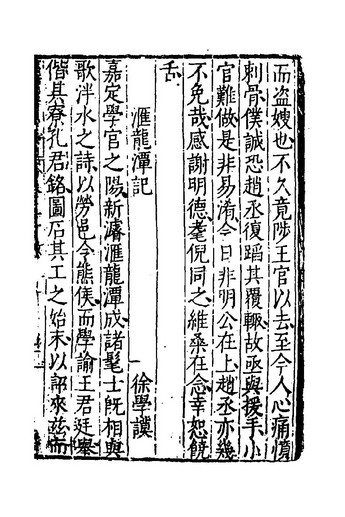 而盗嫂也不久竟陟王官以去至今人心痛憤
刺骨僕誠恐趙丞復蹈其覆轍故亟與援手小
官難做是非易淆今日非明公在上趙丞亦幾
不免哉感謝明德耄倪同之維桑在念幸恕饒
舌
滙龍潭記 徐學謨
嘉定學官之陽新濬滙龍潭成諸髦士旣相與
歌泮水之詩以勞邑令熊侯而學諭王君廷舉
偕其寮孔君銘圖石其工之始末以詔來茲而